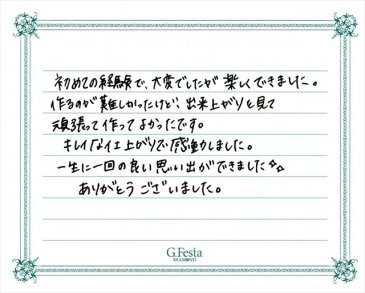 初めての経験で、大変でしたが 楽しくできました。
作るのが難しかったけど、出来上がりを見て
頑張って作ってよかったです。
キレイな仕上がりで感動しました。
一生に一回の良い思い出ができました☆☆
ありがとうございました。
G.Festa
DIAMOND